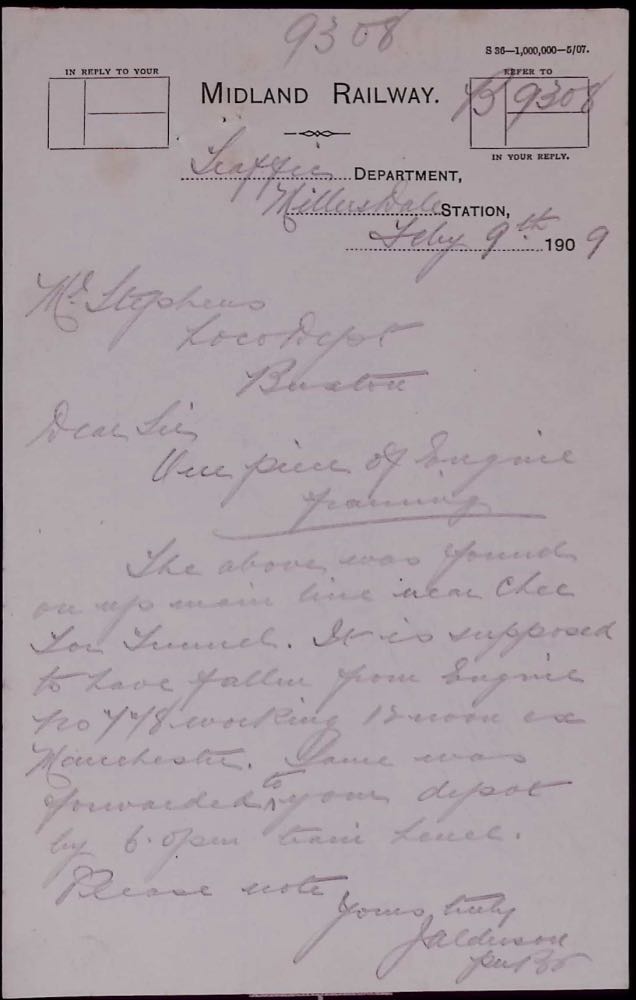 9308
S 36—1,000,000—5/07.
IN REPLY TO YOUR
REFER TO
MIDLAND RAILWAY.
B 9308
IN YOUR REPLY.
Traffic DEPARTMENT,
Millers Dale STATION,
Feby 9th 1909
Mr Stephens
Loco Dept
Buxton
Dear Sir
One piece of Engine
framing
The above was found
on up main line near Chee
Tor Tunnel. It is supposed
to have fallen from Engine
No 778 working 12 noon ex
Manchester. Same was
forwarded to your depot
by 6.0pm train hence.
Please note
Yours truly
J Alderson
per